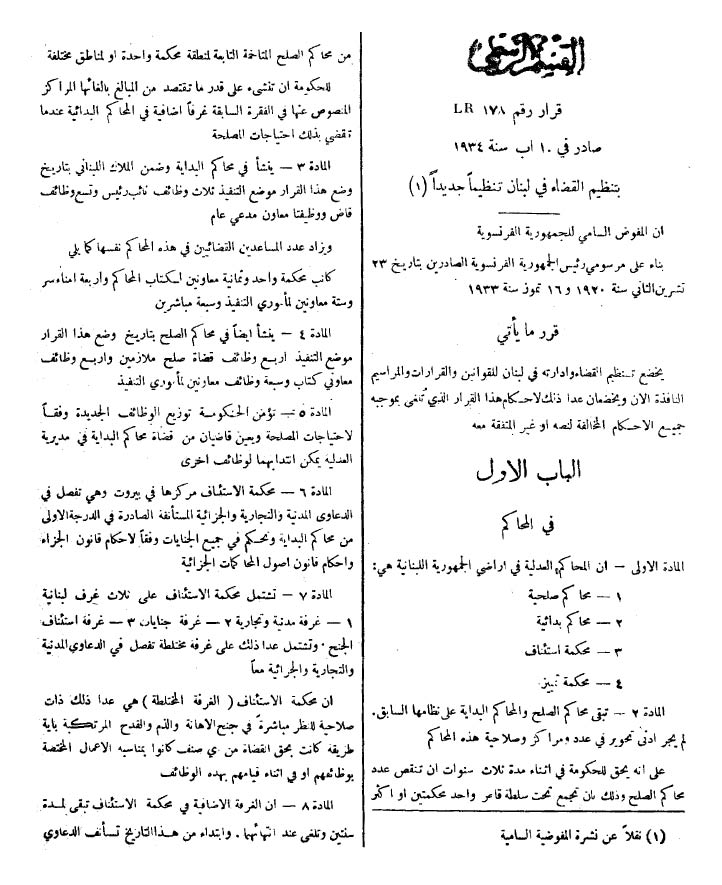 القسم الرسمي
قرار رقم ١٧٨ LR
صادر في ١٠ اب سنة ١٩٣٤
بتنظيم القضاء في لبنان تنظيماً جديداً (١)
ان المفوض السامي للجمهورية الفرنسوية
بناء على مرسومي رئيس الجمهورية الفرنسوية الصادرين بتاريخ ٢٣
تشرين الثاني سنة ١٩٢٠ و ١٦ تموز سنة ١٩٣٣
قرر ما يأتي
يخضع تنظيم القضاء وادارته في لبنان للقوانين والقرارات والمراسيم
النافذة الان ويخضعان عدا ذلك لاحكام هذا القرار الذي تلغى بموجبه
جميع الاحكام المخالفة لنصه او غير المتفقة معه
الباب الاول
في المحاكم
المادة الاولى – ان المحاكم العدلية في اراضي الجمهورية اللبنانية هي:
١ – محاكم صلحية
٢ – محاكم بدائية
٣ – محكمة استئناف
٤ – محكمة تمييز
المادة ٢ – تبقى محاكم الصلح والمحاكم البداية على نظامها السابق.
لم يجر ادنى تحوير في عدد ومراكز وصلاحية هذه المحاكم
على انه يحق للحكومة في اثناء مدة ثلاث سنوات ان تنقص عدد
محاكم الصلح وذلك بان تجمع تحت سلطة قاض واحد محكمتين او اكثر
(١) نقلاً عن نشرة المفوضية السامية
من محاكم الصلح المتاخمة التابعة لمنطقة محكمة واحدة او لمناطق مختلفة
للحكومة ان تنشىء على قدر ما تقتصد من المبالغ بالغائها المراكز
المنصوص عنها في الفقرة السابقة غرفاً اضافية في المحاكم البدائية عندما
تقضي بذلك احتياجات المصلحة
المادة ٣ – ينشأ في محاكم البداية وضمن الملاك اللبناني بتاريخ
وضع هذا القرار موضع التنفيذ ثلاث وظائف نائب رئيس وتسع وظائف
قاض ووظيفتا معاون مدعي عام
ويزاد عدد المساعدين القضائيين في هذه المحاكم نفسها كما يلي
كاتب محكمة واحد وثمانية معاونين لكتاب المحاكم واربعة امناء سر
وستة معاونين لمأموري التنفيذ وسبعة مباشرين
المادة ٤ – ينشأ ايضاً في محاكم الصلح بتاريخ وضع هذا القرار
موضع التنفيذ اربع وظائف قضاة صلح ملازمين واربع وظائف
معاوني كتاب وسبعة وظائف معاونين لمأموري التنفيذ
المادة ٥ – تؤمن الحكومة توزيع الوظائف الجديدة وفقاً
لاحتياجات المصلحة ويعين قاضيان من قضاة محاكم البداية في مديرية
العدلية يمكن انتدابهما لوظائف اخرى
المادة ٦ – محكمة الاستئناف مركزها في بيروت وهي تفصل في
الدعاوى المدنية والتجارية والجزائية المستأنفة الصادرة في الدرجة الاولى
من محاكم البداية وتحكم في جميع الجنايات وفقاً لاحكام قانون الجزاء
واحكام قانون اصول المحاكمات الجزائية
المادة ٧ – تشتمل محكمة الاستئناف على ثلاث غرف لبنانية
١ – غرفة مدنية وتجارية ٢ – غرفة جنايات ٣ – غرفة استئناف
الجنح. وتشتمل عدا ذلك على غرفة مختلطة تفصل في الدعاوي المدنية
والتجارية والجزائية معاً
ان محكمة الاستئناف (الغرفة المختلطة) هي عدا ذلك ذات
صلاحية للنظر مباشرة في جنح الاهانة والذم والقدح المرتكبة باية
طريقة كانت بحق القضاة من اي صنف كانوا بمناسبة الاعمال المختصة
بوظائفهم او في اثناء قيامهم بهذه الوظائف
المادة ٨ – ان الغرفة الاضافية في محكمة الاستئناف تبقى لمدة
سنتين وتلغى عند انتهائها. وابتداء من هذا التاريخ تستأنف الدعاوي